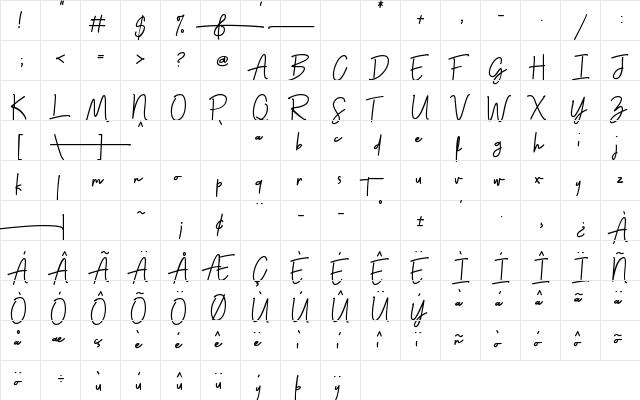 ! " # $ % & ' * + , - . / :
; < = > ? @ A B C D E F G H I J
K L M N O P Q R S T U V W X Y Z
[ \ ] ^ ` a b c d e f g h i j
k l m n o p q r s t u v w x y z
| ~ ¡ ¢ ¨ - ¯ ° ± ´ · ¸ ¿ À
Á Â Ã Ä Å Æ Ç È É Ê Ë Ì Í Î Ï Ñ
Ò Ó Ô Õ Ö Ø Ù Ú Û Ü Ý à á â ã ä
å æ ç è é ê ë ì í î ï ñ ò ó ô õ
ö ÷ ù ú û ü ý þ ÿ